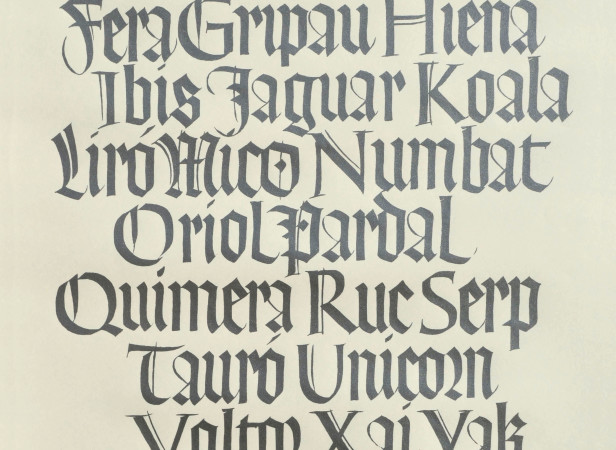 Fera Gripau Hiena
Ibis Jaguar Koala
Liró Mico Numbat
Oriol Pardal
Quimera Ruc Serp
Tauró Unicorn
Voltor Xai Yak